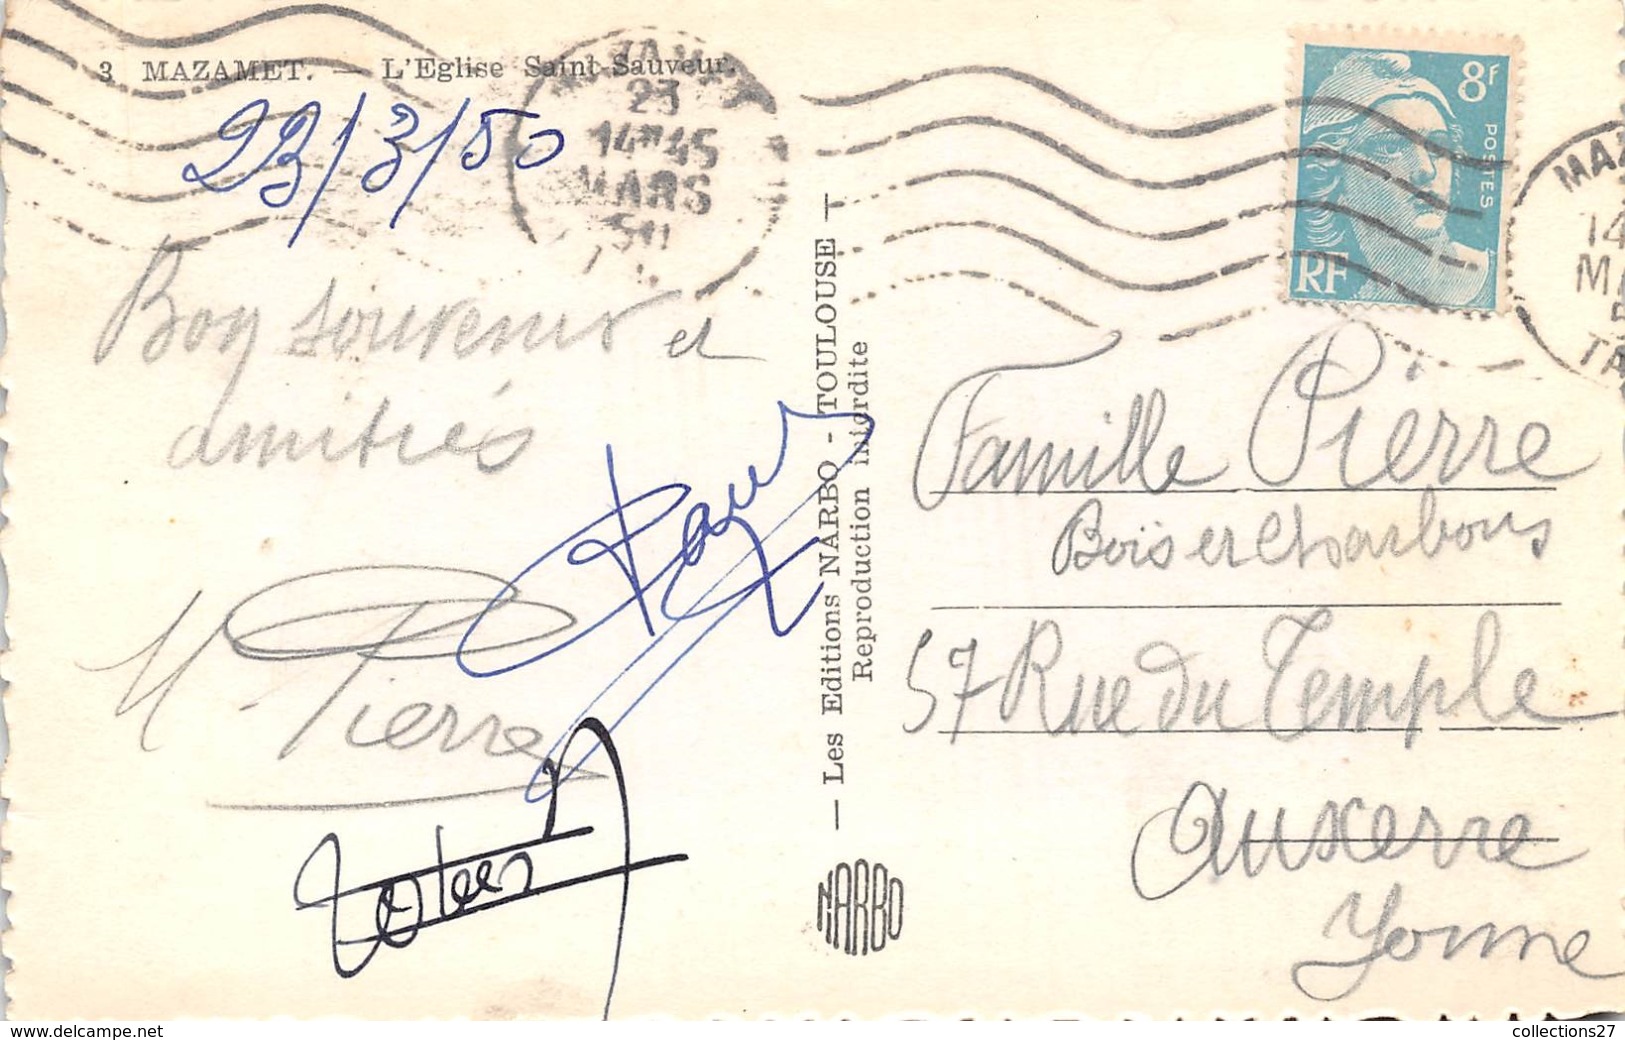 3 MAZAMET. — L'Eglise Saint-Sauveur.
23/3/50
23
14H45
MARS
50
Bon souvenir et
amitiés
M. Pierre
— Les Editions NARBO - TOULOUSE —
Reproduction interdite
NARBO
8F
POSTES
RF
MAZ
14
MA
5
TA
Famille Pierre
Bois et Charbons
57 Rue du Temple
Auxerre
Yonne
collections27